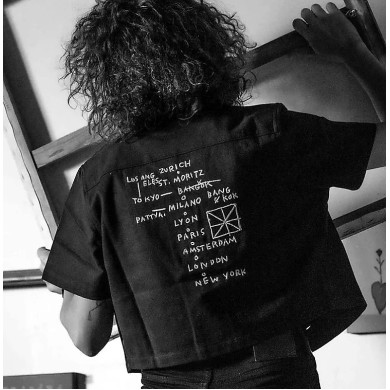 ZURICH
LOS ANG
ELES ST. MORITZ
TOKYO — BANGOK
PATTYA. MILANO BANG
KOK
LYON
PARIS
AMSTERDAM
LONDON
NEW YORK